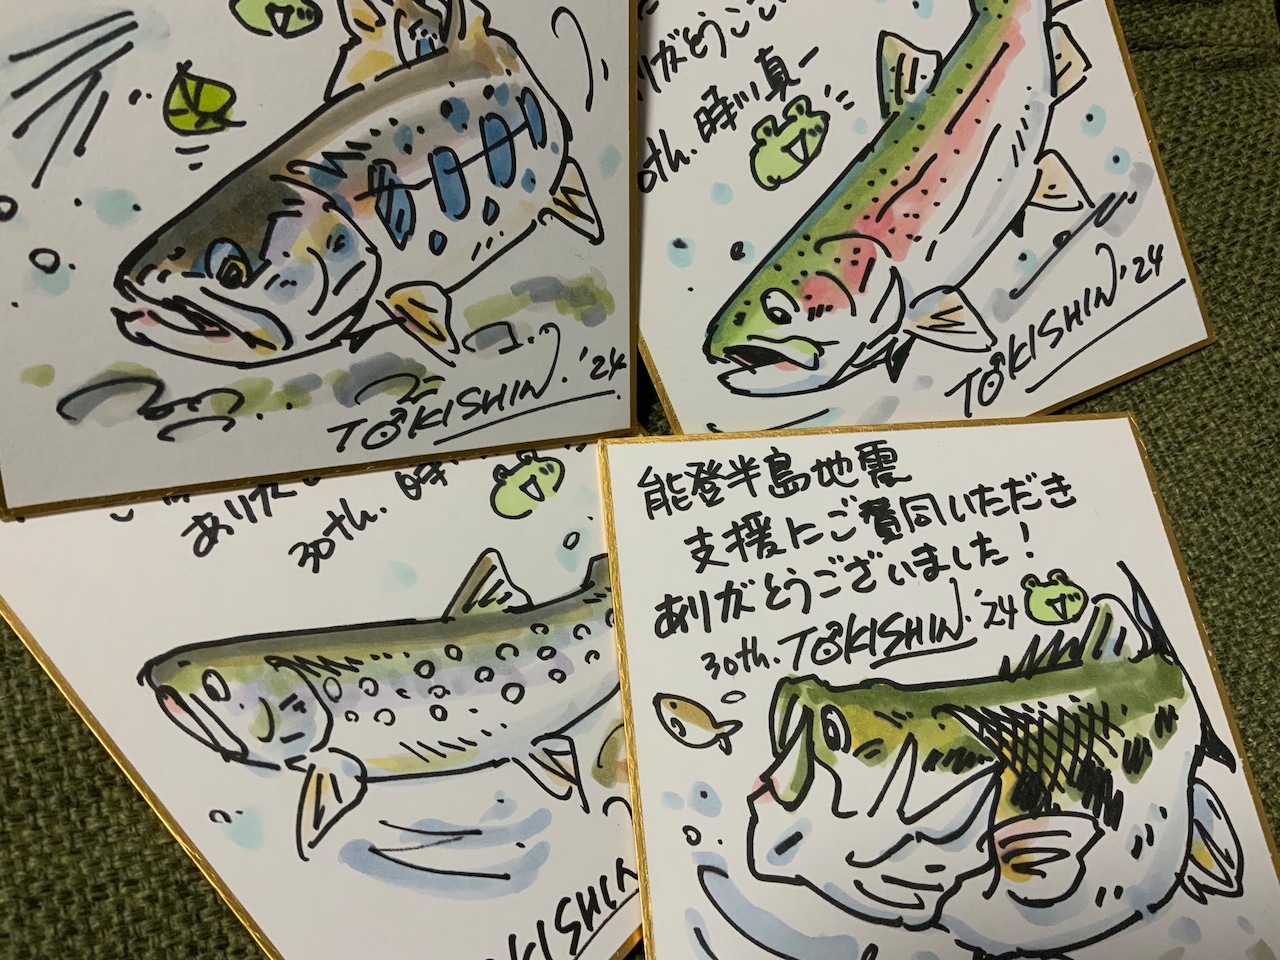 TOKISHIN.'24
ありがとうござい
0th. 時川真一
TOKISHIN'24
ありが
30th. 時川
OKISHIN
能登半島地震
支援にご賛同いただき
ありがとうございました!
30th. TOKISHIN.'24